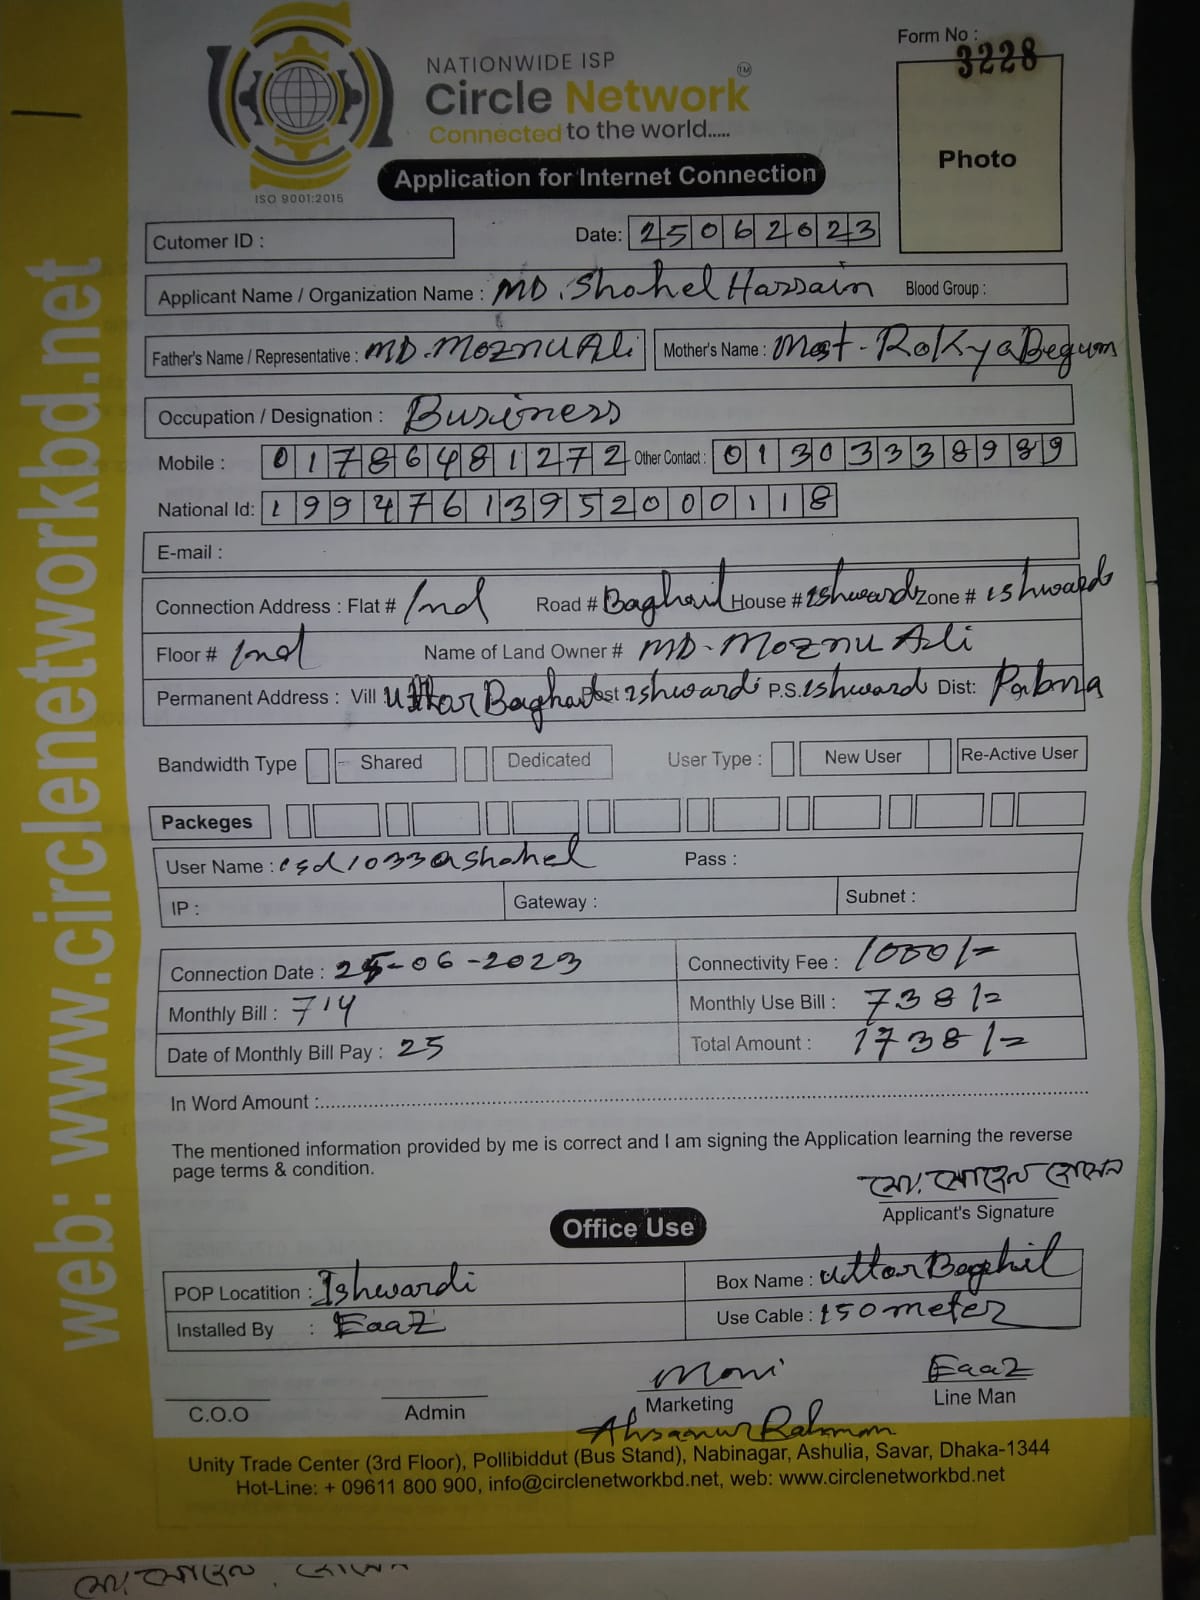 NATIONWIDE ISP
Circle Network TM
Connected to the world.....
ISO 9001:2015
Form No : 3228
Photo
Application for Internet Connection
Cutomer ID :
Date: 25062023
Applicant Name / Organization Name : MD. Shohel Hassain Blood Group :
Father's Name / Representative : MD. Moznu Ali Mother's Name : Most. Rokya Begum
Occupation / Designation : Business
Mobile : 01786481272 Other Contact : 01303338989
National Id: 19947613952000118
E-mail :
Connection Address : Flat # 1nd Road # Baghail House # ishwardi Zone # ishwardi
Floor # 1nd Name of Land Owner # MD. Moznu Ali
Permanent Address : Vill : Uttar Baghail Post ishwardi P.S. ishwardi Dist: Pabna
Bandwidth Type Shared Dedicated User Type : New User Re-Active User
Packeges
User Name : isd1033@shohel Pass :
IP : Gateway : Subnet :
Connection Date : 25-06-2023 Connectivity Fee : 1000/=
Monthly Bill : 714 Monthly Use Bill : 738/=
Date of Monthly Bill Pay : 25 Total Amount : 1738/=
In Word Amount :
The mentioned information provided by me is correct and I am signing the Application learning the reverse
page terms & condition.
মো: সোহেল হোসেন
Applicant's Signature
Office Use
POP Locatition : Ishwardi Box Name : Uttar Baghil
Installed By : EaaZ Use Cable : 150 meter
Moni EaaZ
C.O.O Admin Marketing Line Man
Ahsanur Rahman
Unity Trade Center (3rd Floor), Pollibiddut (Bus Stand), Nabinagar, Ashulia, Savar, Dhaka-1344
Hot-Line: + 09611 800 900, info@circlenetworkbd.net, web: www.circlenetworkbd.net
web: www.circlenetworkbd.net
মো: সোহেল হোসেন